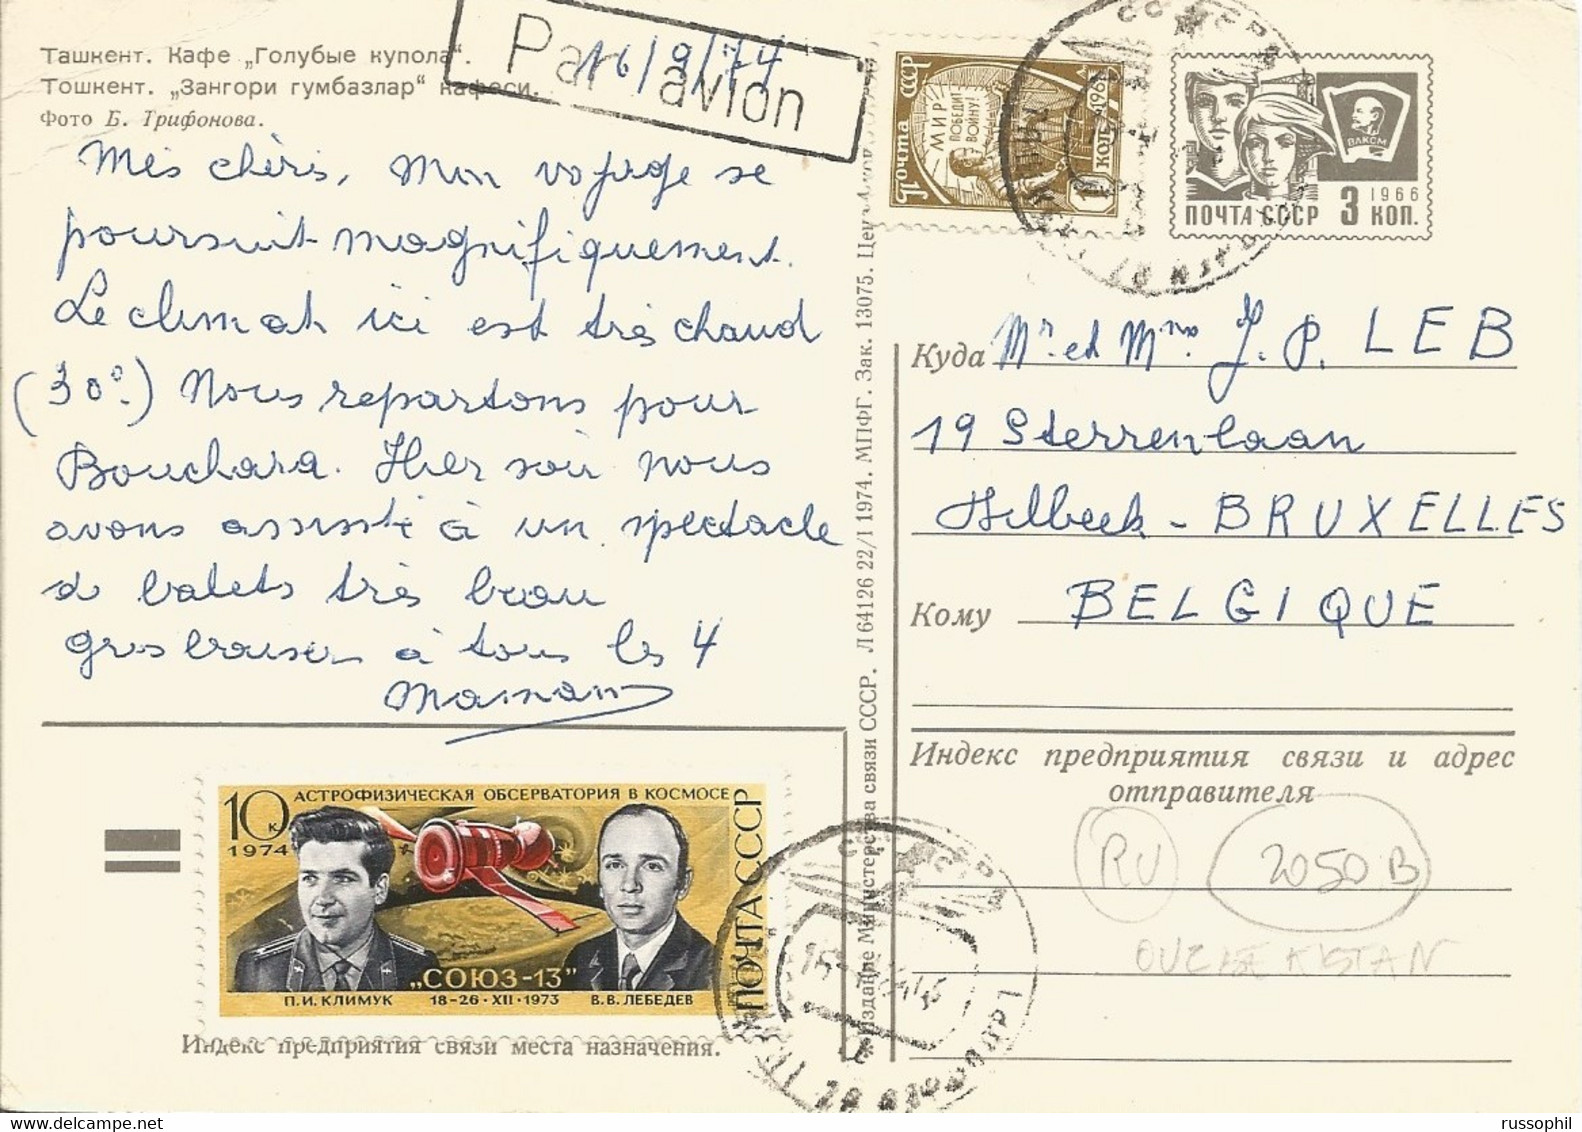 Ташкент. Кафе „Голубые купола“.
Тошкент. „Зангори гумбазлар“ кафеси.
Фото Б. Трифонова.
Par avion
16/9/74
Mes chéris, Mon voyage se
poursuit magnifiquement.
Le climat ici est très chaud
(30°.) Nous repartons pour
Bouchara. Hier soir nous
avons assisté à un spectacle
de balets très beau
gros baisers à tous les 4
Maman
10 к
1974
АСТРОФИЗИЧЕСКАЯ ОБСЕРВАТОРИЯ В КОСМОСЕ
ПОЧТА СССР
„СОЮЗ-13”
П.И. КЛИМУК 18-26·XII·1973 В.В. ЛЕБЕДЕВ
Индекс предприятия связи места назначения.
Издание Министерства связи СССР. Л 64126 22/I 1974. МПФГ. Зак. 13075.
Почта СССР
МИР ПОБЕДИТ ВОЙНУ!
1961
коп
ВЛКСМ
1966
ПОЧТА СССР 3 КОП.
СССР
Куда Mr. et Mme. J. P. LEB
19 Sterrenlaan
Hilbeek - BRUXELLES
Кому BELGIQUE
Индекс предприятия связи и адрес
отправителя
RU 2050 B
OUZBEKISTAN
СССР
russophil